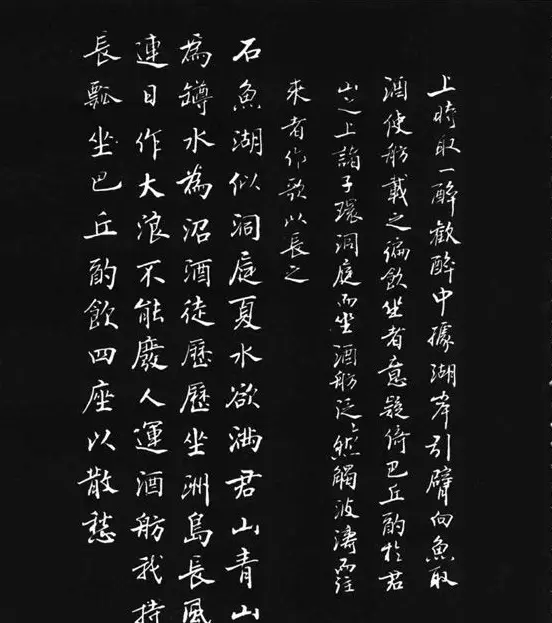 上時取一醉歡醉中據湖岸引臂向魚取
酒使舫載之徧飲坐者意疑倚巴丘酌於君
山之上諸子環洞庭而坐酒舫泛々然觸波濤而往
來者作歌以長之
石魚湖似洞庭夏水欲滿君山青山
為罇水為沼酒徒歷歷坐洲島長風
連日作大浪不能廢人運酒舫我持
長瓢坐巴丘酌飲四座以散愁